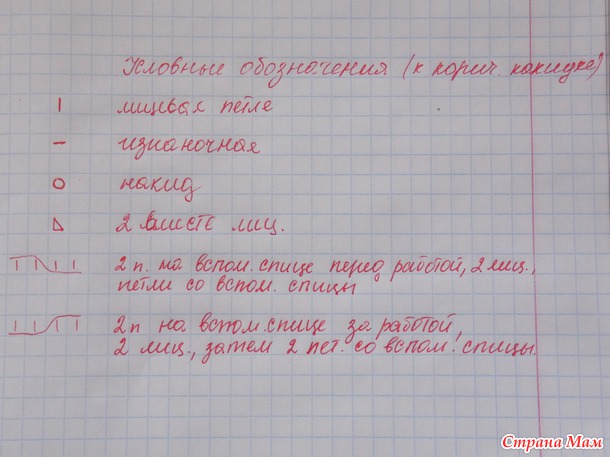 Условные обозначения (к корич. накидке)
| лицевая петля
− изнаночная
○ накид
⊿ 2 вместе лиц.
2 п. на вспом. спице перед работой, 2 лиц.,
петли со вспом. спицы
2 п на вспом. спице за работой,
2 лиц., затем 2 пет. со вспом. спицы.
Страна Мам